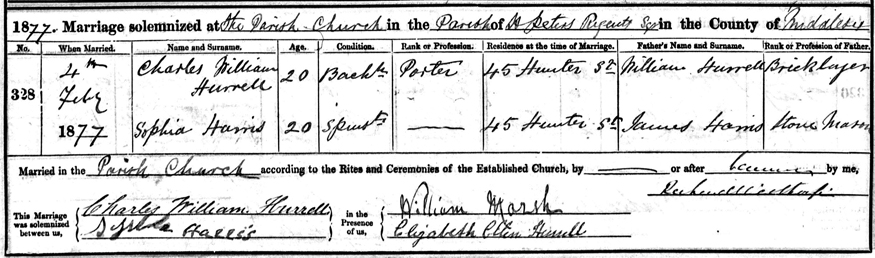 1877. Marriage solemnized at The Parish Church in the Parish of St Peters Regents Sqr in the County of Middlesex
No. When Married. Name and Surname. Age. Condition. Rank or Profession. Residence at the time of Marriage. Father's Name and Surname. Rank or Profession of Father.
328 4th Feby 1877 Charles William Hurrell 20 Bachr Porter 45 Hunter St William Hurrell Bricklayer
Sophia Harris 20 Spinstr — 45 Hunter St James Harris Stone Mason
Married in the Parish Church according to the Rites and Ceremonies of the Established Church, by — or after Banns by me,
This Marriage was solemnized between us, Charles William Hurrell in the Presence of us, William Marsh
Harris Elizabeth Ellen Hurrell